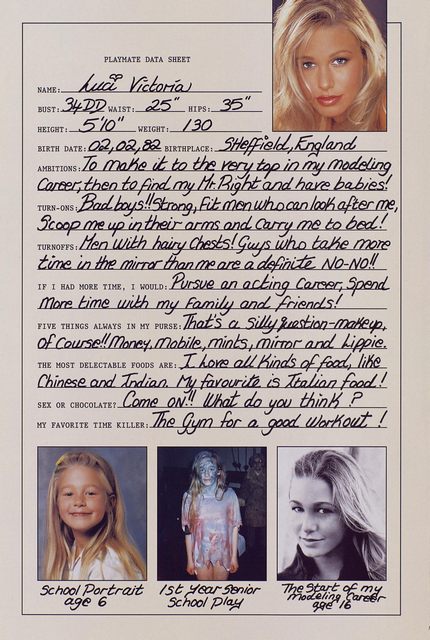 PLAYMATE DATA SHEET
NAME: Luci Victoria
BUST: 34DD WAIST: 25" HIPS: 35"
HEIGHT: 5'10" WEIGHT: 130
BIRTH DATE: 02,02,82 BIRTHPLACE: Sheffield, England
AMBITIONS: To make it to the very top in my modeling
Career, then to find my Mr. Right and have babies!
TURN-ONS: Bad boys!! Strong, Fit men who can look after me,
Scoop me up in their arms and carry me to bed!
TURNOFFS: Men with hairy chests! Guys who take more
time in the mirror than me are a definite NO-NO!!
IF I HAD MORE TIME, I WOULD: Pursue an acting career, spend
more time with my family and friends!
FIVE THINGS ALWAYS IN MY PURSE: That's a silly question-makeup,
of course!! Money, mobile, mints, mirror and Lippie.
THE MOST DELECTABLE FOODS ARE: I love all kinds of food, like
Chinese and Indian. My favourite is Italian food!
SEX OR CHOCOLATE? Come ON!! What do you think?
MY FAVORITE TIME KILLER: The Gym for a good workout!
School Portrait
age 6
1st year senior
School Play
The Start of my
modeling career
age 16